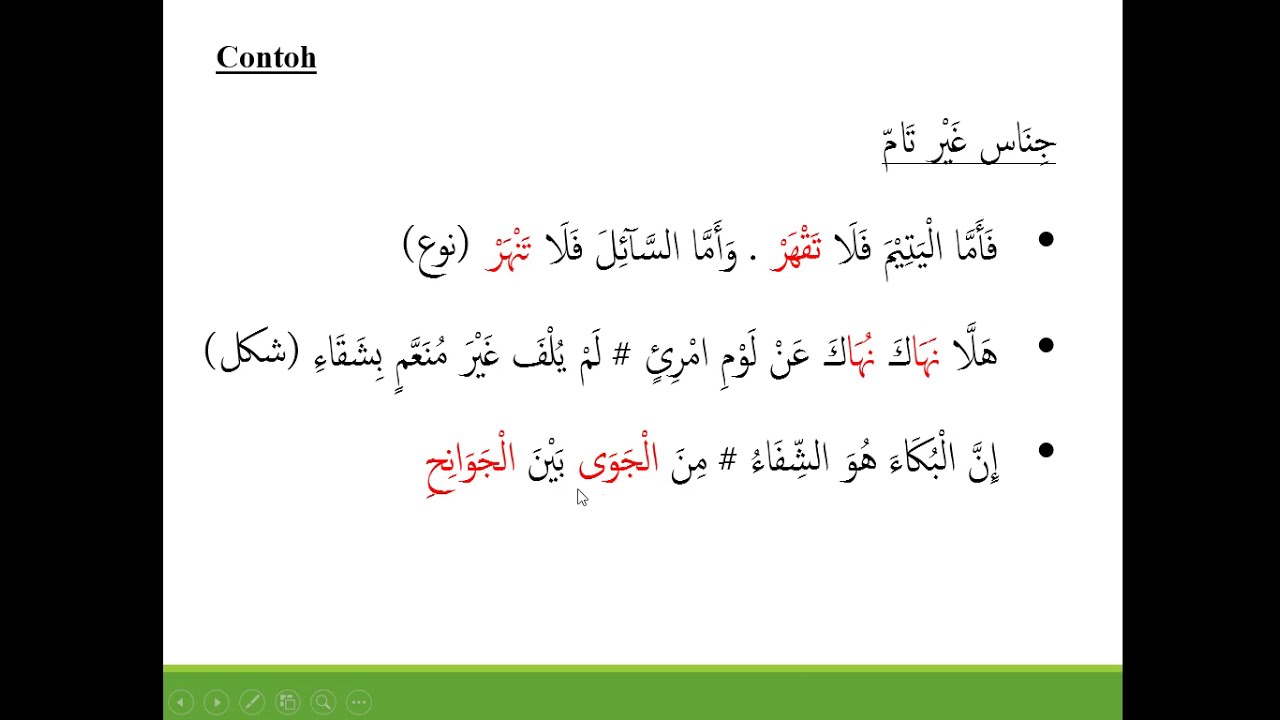 Contoh
جِنَاس غَيْر تَامّ
• فَأَمَّا الْيَتِيْمَ فَلَا تَقْهَرْ . وَأَمَّا السَّآئِلَ فَلَا تَنْهَرْ (نوع)
• هَلَّا نَهَاكَ نُهَاكَ عَنْ لَوْمِ امْرِئٍ # لَمْ يُلْفَ غَيْرَ مُنَعَّمٍ بِشَقَاءِ (شكل)
• إِنَّ الْبُكَاءَ هُوَ الشِّفَاءُ # مِنَ الْجَوَى بَيْنَ الْجَوَانِحِ